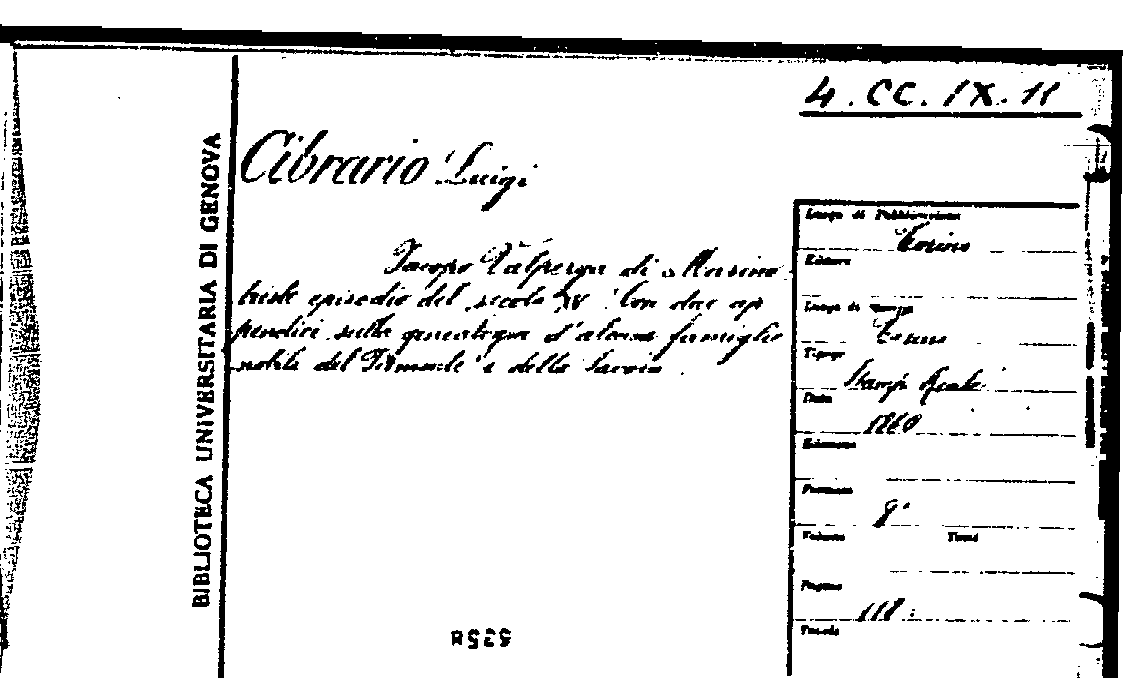 4. CC. IX. 11
BIBLIOTECA UNIVERSITARIA DI GENOVA
Cibrario Luigi
Jacopo Valperga di Masino
triste episodio del secolo XV. Con due ap
pendici sulla genealogia d'alcune famiglie
nobili del Piemonte e della Savoia.
Luogo di Pubblicazione
Torino
Editore
Luogo di stampa
Torino
Tipogr.
Stamp. Reale
Data
1860
Edizione
Formato
8°
Volume Tomi
Pagine
118.
Tavole